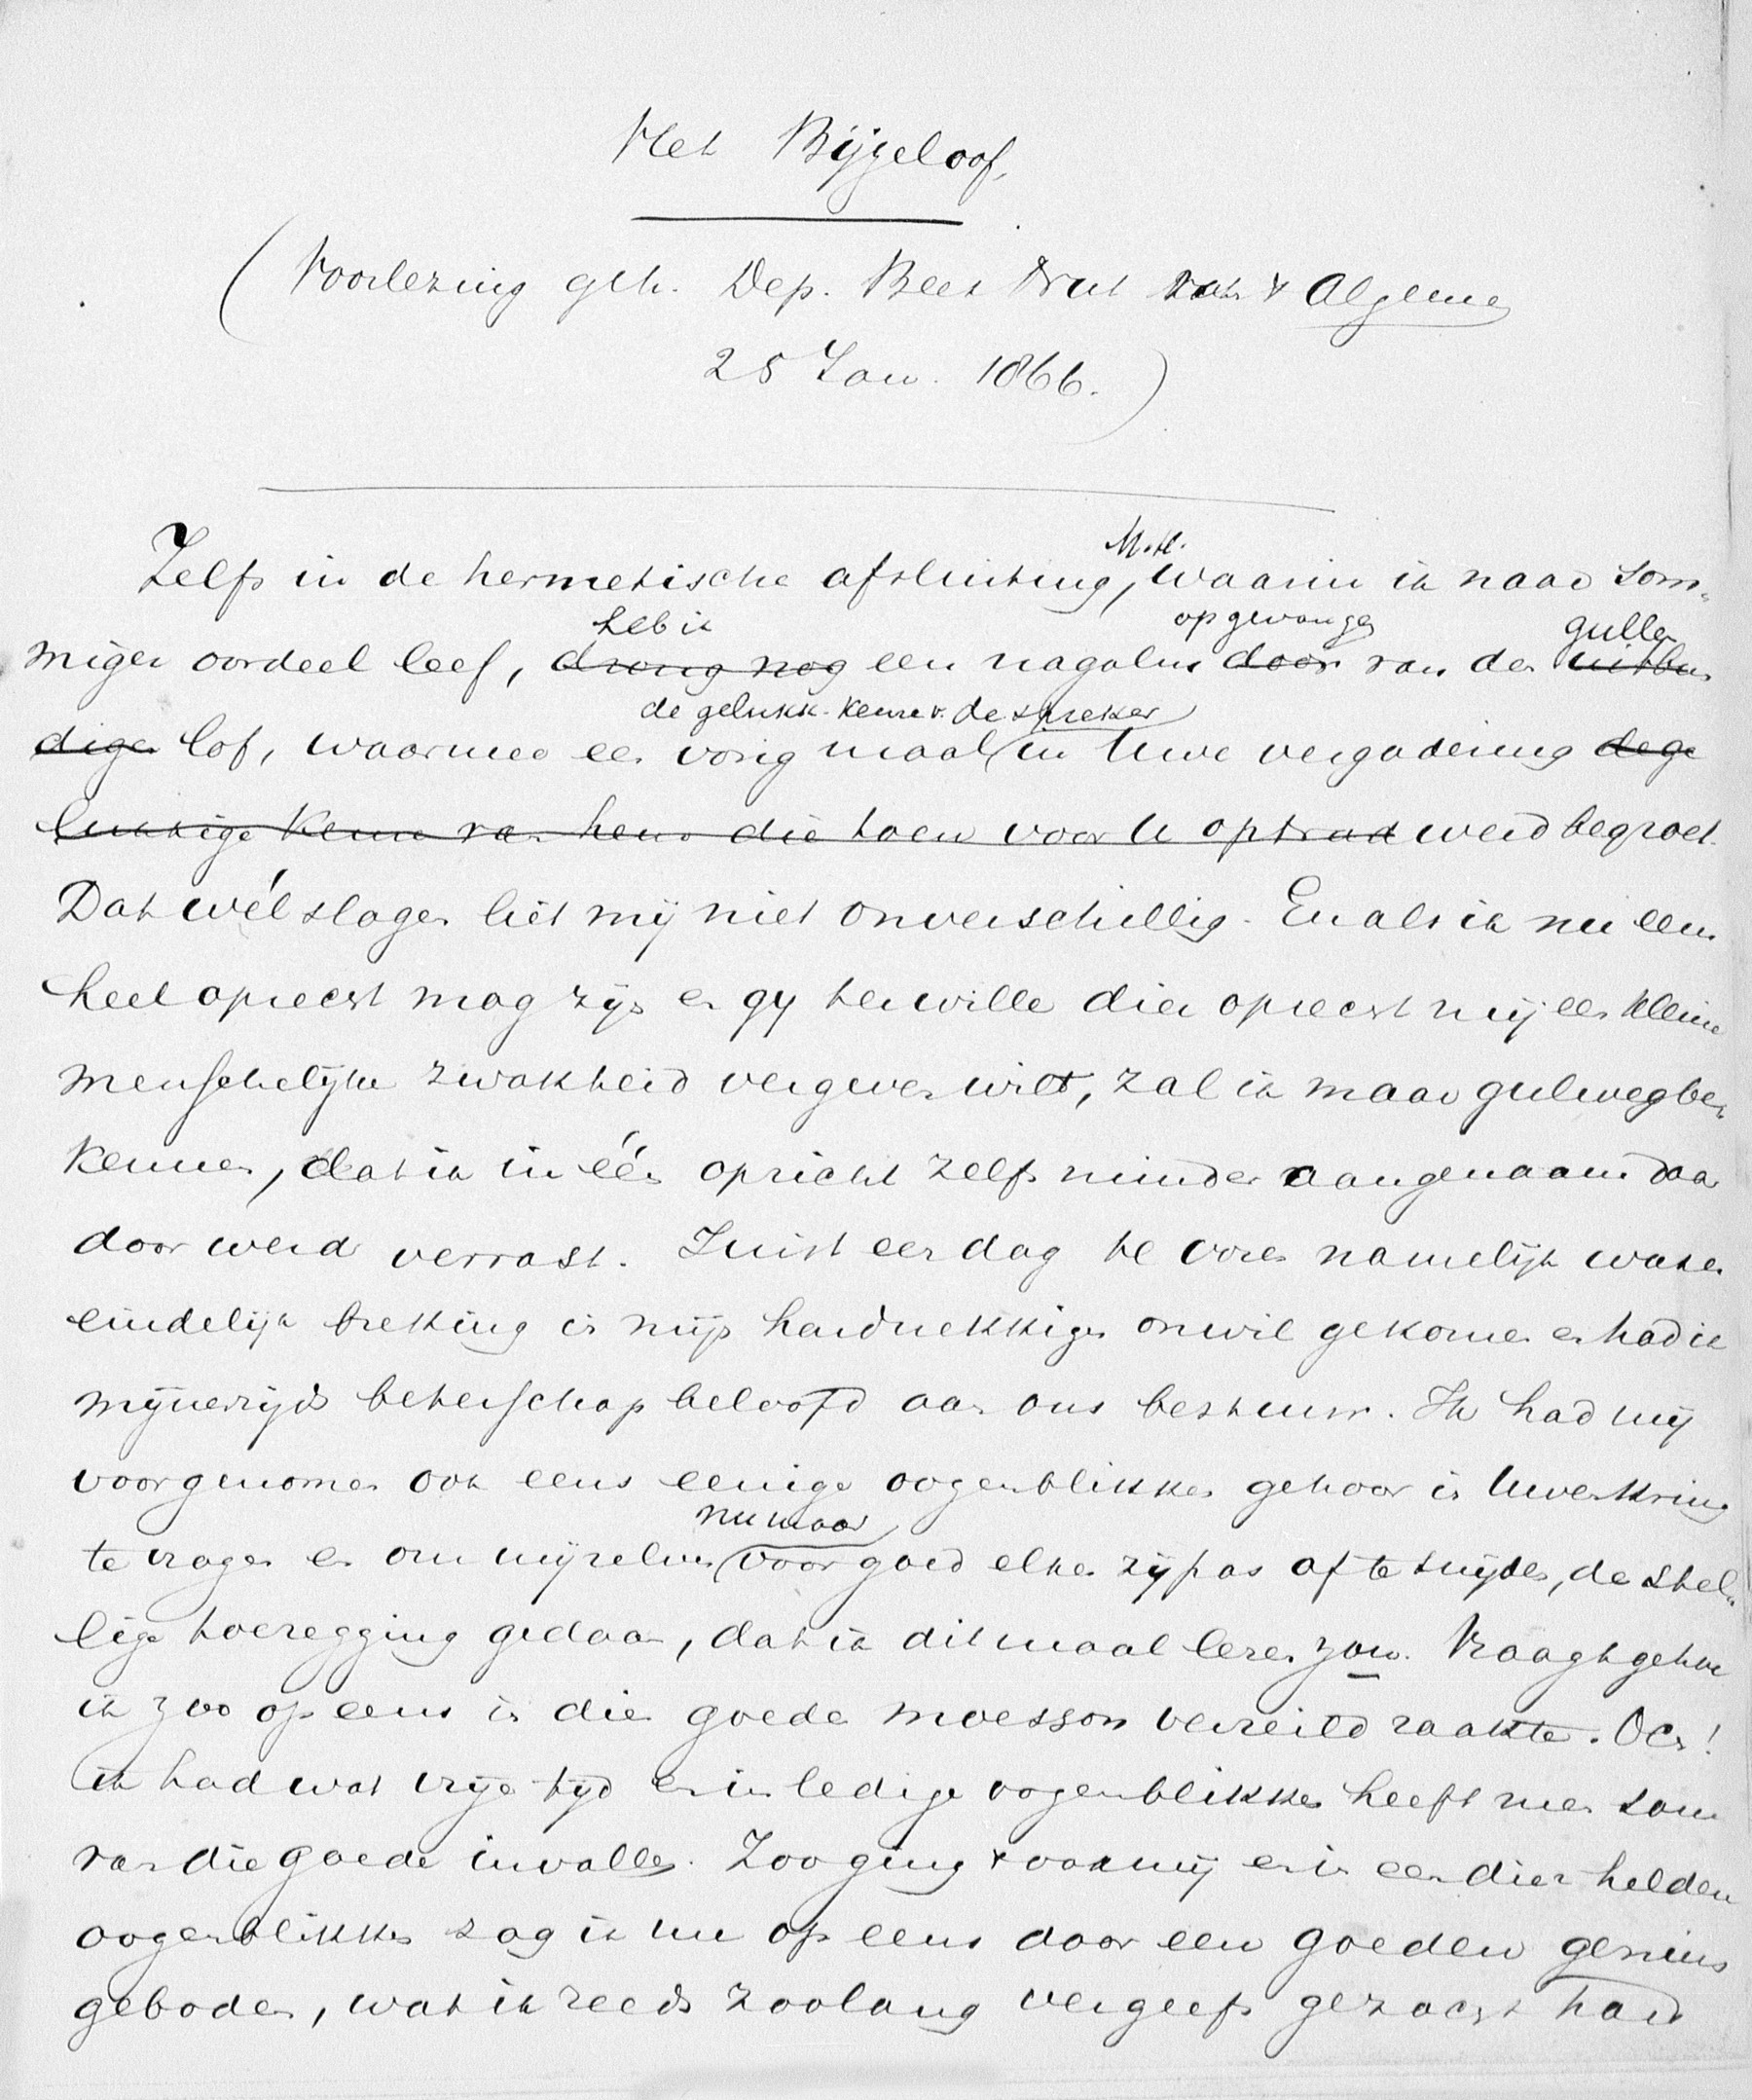 Het Bijgeloof.
(Voorlezing geh. Dep. Beets Nut v Algemeen
25 Jan. 1866.)
M.H.
Zelfs in de hermetische afsluiting, waarin ik naar som-
heb ik opgevangen gullen
migen oordeel leef, drong nog een nagalm door van den uitbun
de gelukk. keuze v. de spreker
digen lof, waarmee een vorig maal in Uwe vergadering de ge
lukkige keuze van hem die toen voor U optrad werd begroet.
Dat wél slagen liet mij niet onverschillig. En als ik nu eens
heel oprecht mag zijn en gy terwille dier oprecht mij een kleine
menschelijke zwakheid vergeven wilt, zal ik maar gulweg be-
kennen, dat ik in één opzicht zelfs minder aangenaam daar
door werd verrast. Juist een dag te voren namelijk was er
eindelijk breking in mijn hardnekkigen onwil gekomen en had ik
mijnerzijds beterschap beloofd aan ons bestuur. Ik had mij
voorgenomen ook eens eenige oogenblikken gehoor in Uwen kring
nu maar
te vragen en om mijzelven voor goed elken zijpas af te snijden, de stel-
lige toezegging gedaan, dat ik ditmaal lezen zou. Vraagt ge hoe
ik zoo op eens in die goede moesson verzeild raakte. Och!
ik had wat vrije tijd en in ledige oogenblikken heeft men soms
van die goede invallen. Zoo ging 't ook mij en in een dier heldere
oogenblikken zag ik me op eens door een goeden genius
geboden, wat ik reeds zoolang vergeefs gezocht had